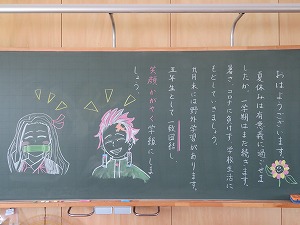 おはようございます。
夏休みは有意義に過ごせま
したか。一学期はまだ続きます。
暑さ、コロナに負けず、学校生活に
もどしていきましょう。
九月末には野外学習があります。
五年生として一致団結し、
笑顔かがやく学級にしま
しょう。